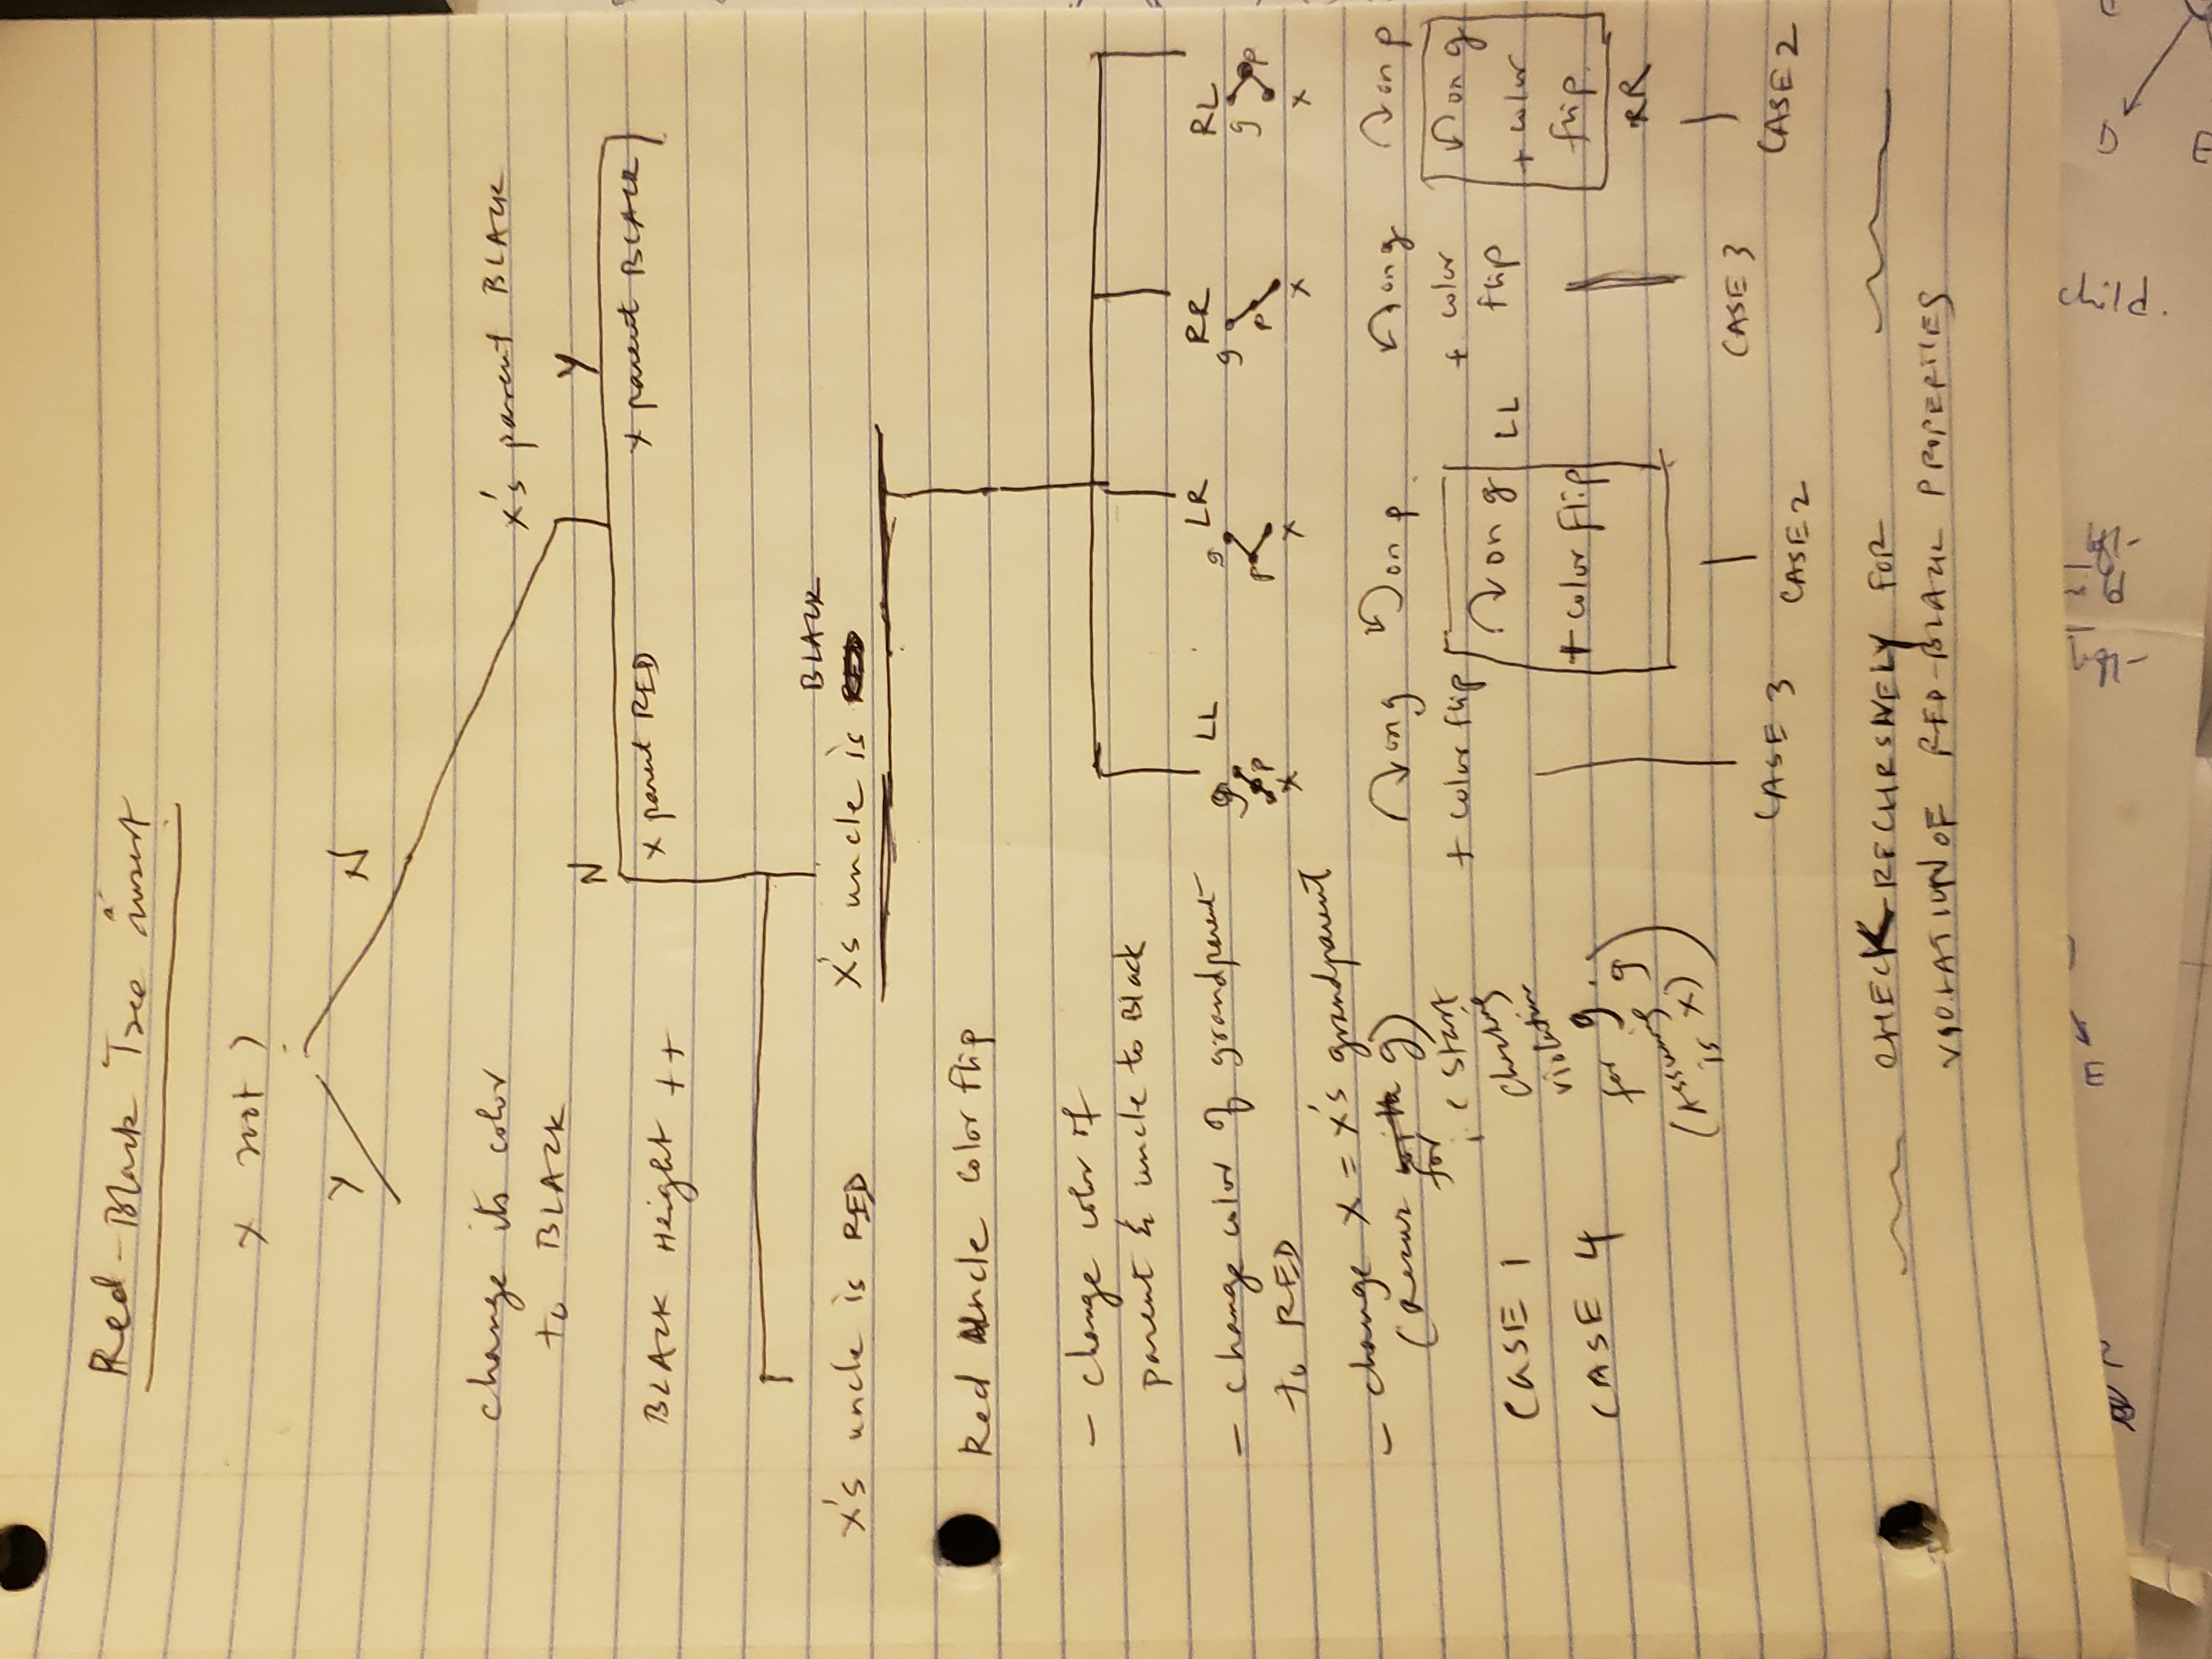 Red-Black Tree insert
X root ?
Y N
change its color
to BLACK
x's parent BLACK
N Y
X parent RED X parent BLACK
BLACK Height ++
BLACK
X's uncle is RED X's uncle is
Red Uncle color flip
- change color of
parent & uncle to Black
- change color of grandparent
to RED
- change X = X's grandparent
(Recur for g)
i.e start
checking
violation
for g.
(Assuming g
is X)
CASE 1
CASE 4
LL LR RR RL
g g g g
p p p p
x x x x
on g on p on g on p
+ color flip + color
flip
on g LL
+ color flip
on g
+ color
flip
RR
CASE 3 CASE 2 CASE 3 CASE 2
CHECK RECURSIVELY FOR
VIOLATION OF RED-BLACK PROPERTIES